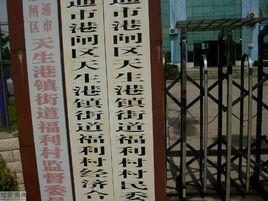 通市
闸区
天生港镇街道福利村监督委员
通市港闸区天生港镇街道福利村经济合
通市港闸区天生港镇街道福利村村民委